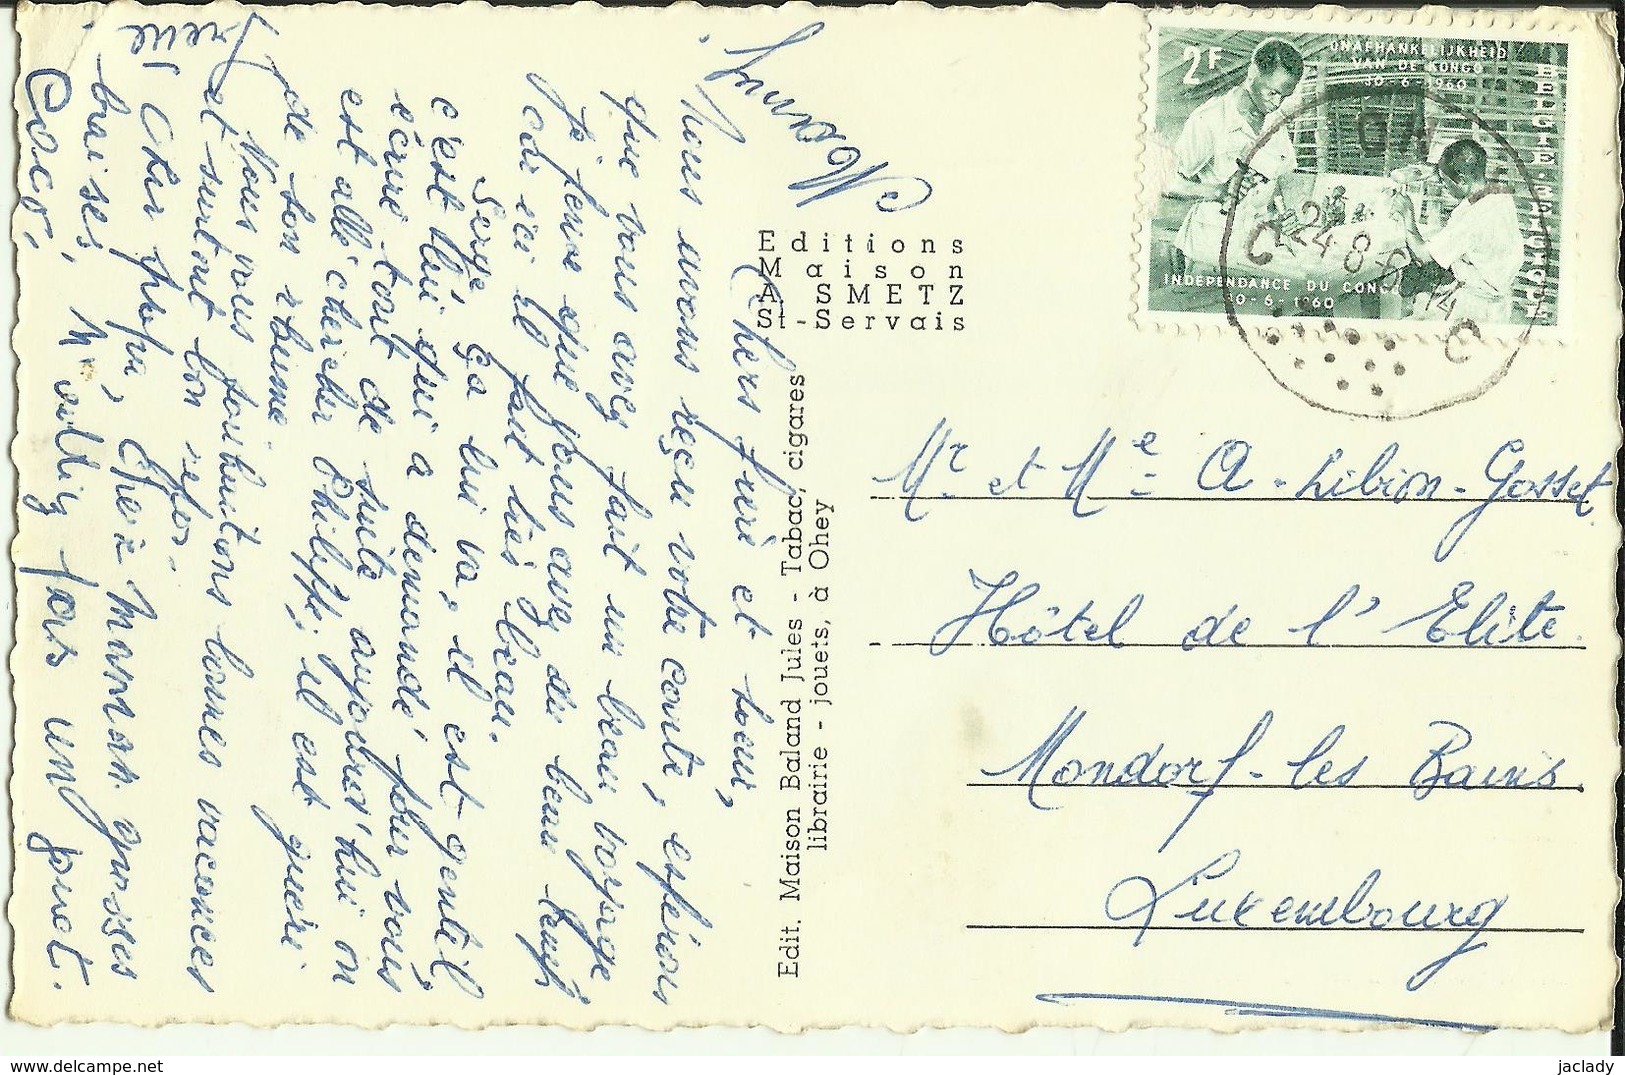 Chers frère et soeur,
Nous avons reçu votre carte, espérons
que vous avez fait un beau voyage
je pense que vous avez du beau temps
car ici il fait très beau.
Serge ça lui va, il est gentil
c'est lui qui a demandé pour vous
écrire tout de suite aujourd'hui on
est allé chercher Philippe, il est guéri
de son rhume.
Vous vous souhaitons bonnes vacances
et surtout bon repos.
Irène
Cher papa, Chère maman grosses
baises, N'oubliez pas un pnot.
Coco,
Editions
Maison
A. SMETZ
St-Servais
Edit. Maison Baland Jules - Tabac, cigares
librairie - jouets, à Ohey
2F
ONAFHANKELIJKHEID
VAN DE KONGO
30-6-1960
BELGIE-BELGIQUE
INDEPENDANCE DU CONGO
30-6-1960
OHEY
24-8-60 14
C C
Mr et Me A. Libion-Gosset
Hôtel de l'Elite.
Mondorf-les Bains.
Luxembourg
jaclady